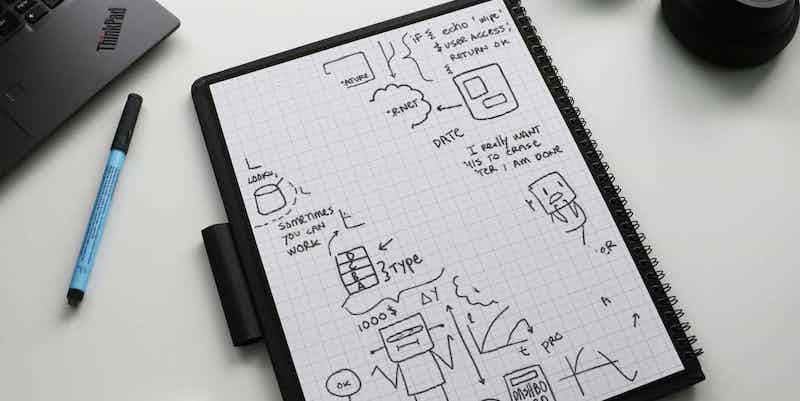 ThinkPad
if { echo 'wipe'
$ USER ACCESS;
RETURN OK
}
ATURE
R.NET
DATE
I REALLY WANT
IS TO ERASE
TER I AM DONE
LOOKU
SOMETIMES
YOU CAN
WORK
D
C
B
A
TYPE
OR
A
1000$
ΔY
l
t
PRO
OK
DASHBO